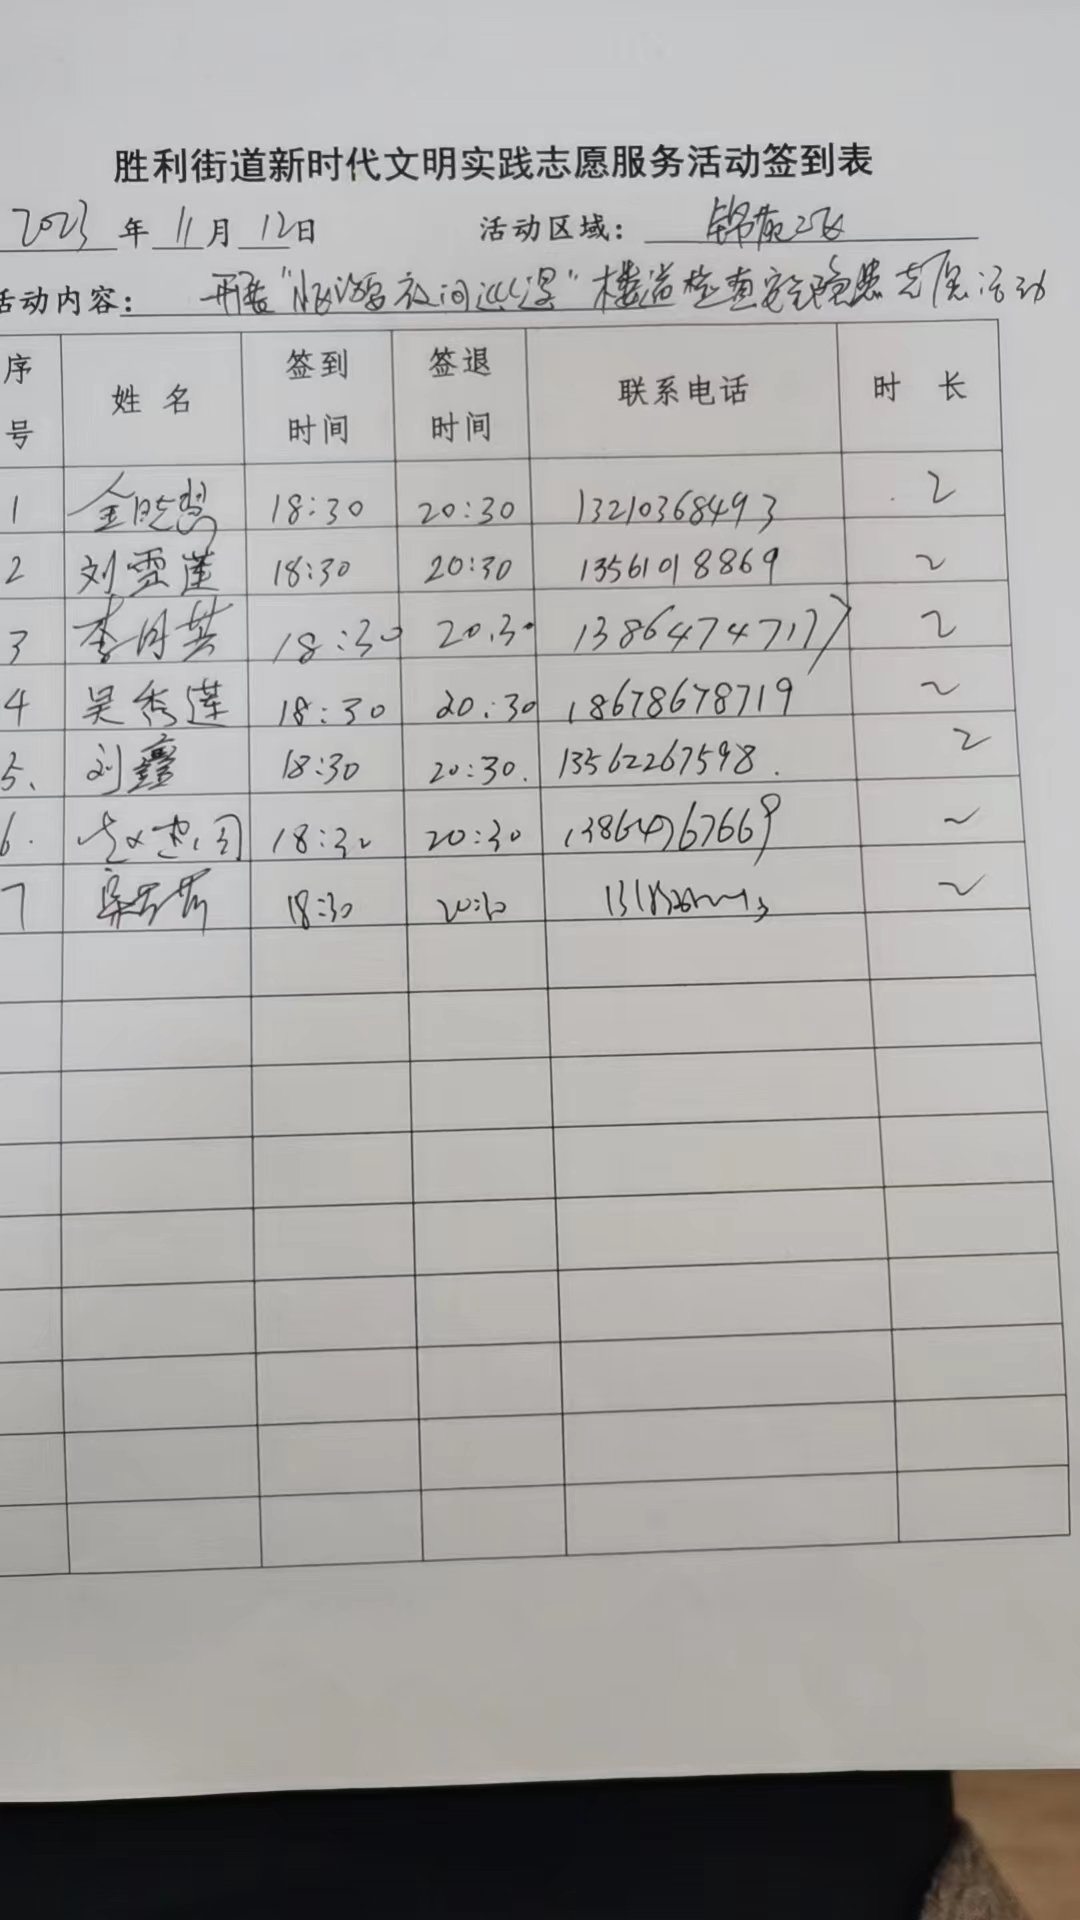 胜利街道新时代文明实践志愿服务活动签到表
2023年11月12日 活动区域：锦苑二区
活动内容： 开展" 夜间巡逻"楼道检查安全隐患志愿活动
序号 姓名 签到时间 签退时间 联系电话 时长
1 金晓慧 18:30 20:30 13210368493 2
2 刘雪莲 18:30 20:30 13561018869 2
3 李月英 18:30 20.30 13864747177 2
4 吴秀莲 18:30 20:30 18678678719 2
5. 刘鑫 18:30 20:30. 13562267598. 2
6. 18:30 20:30 13864767669 2
7 18:30 20:30 2